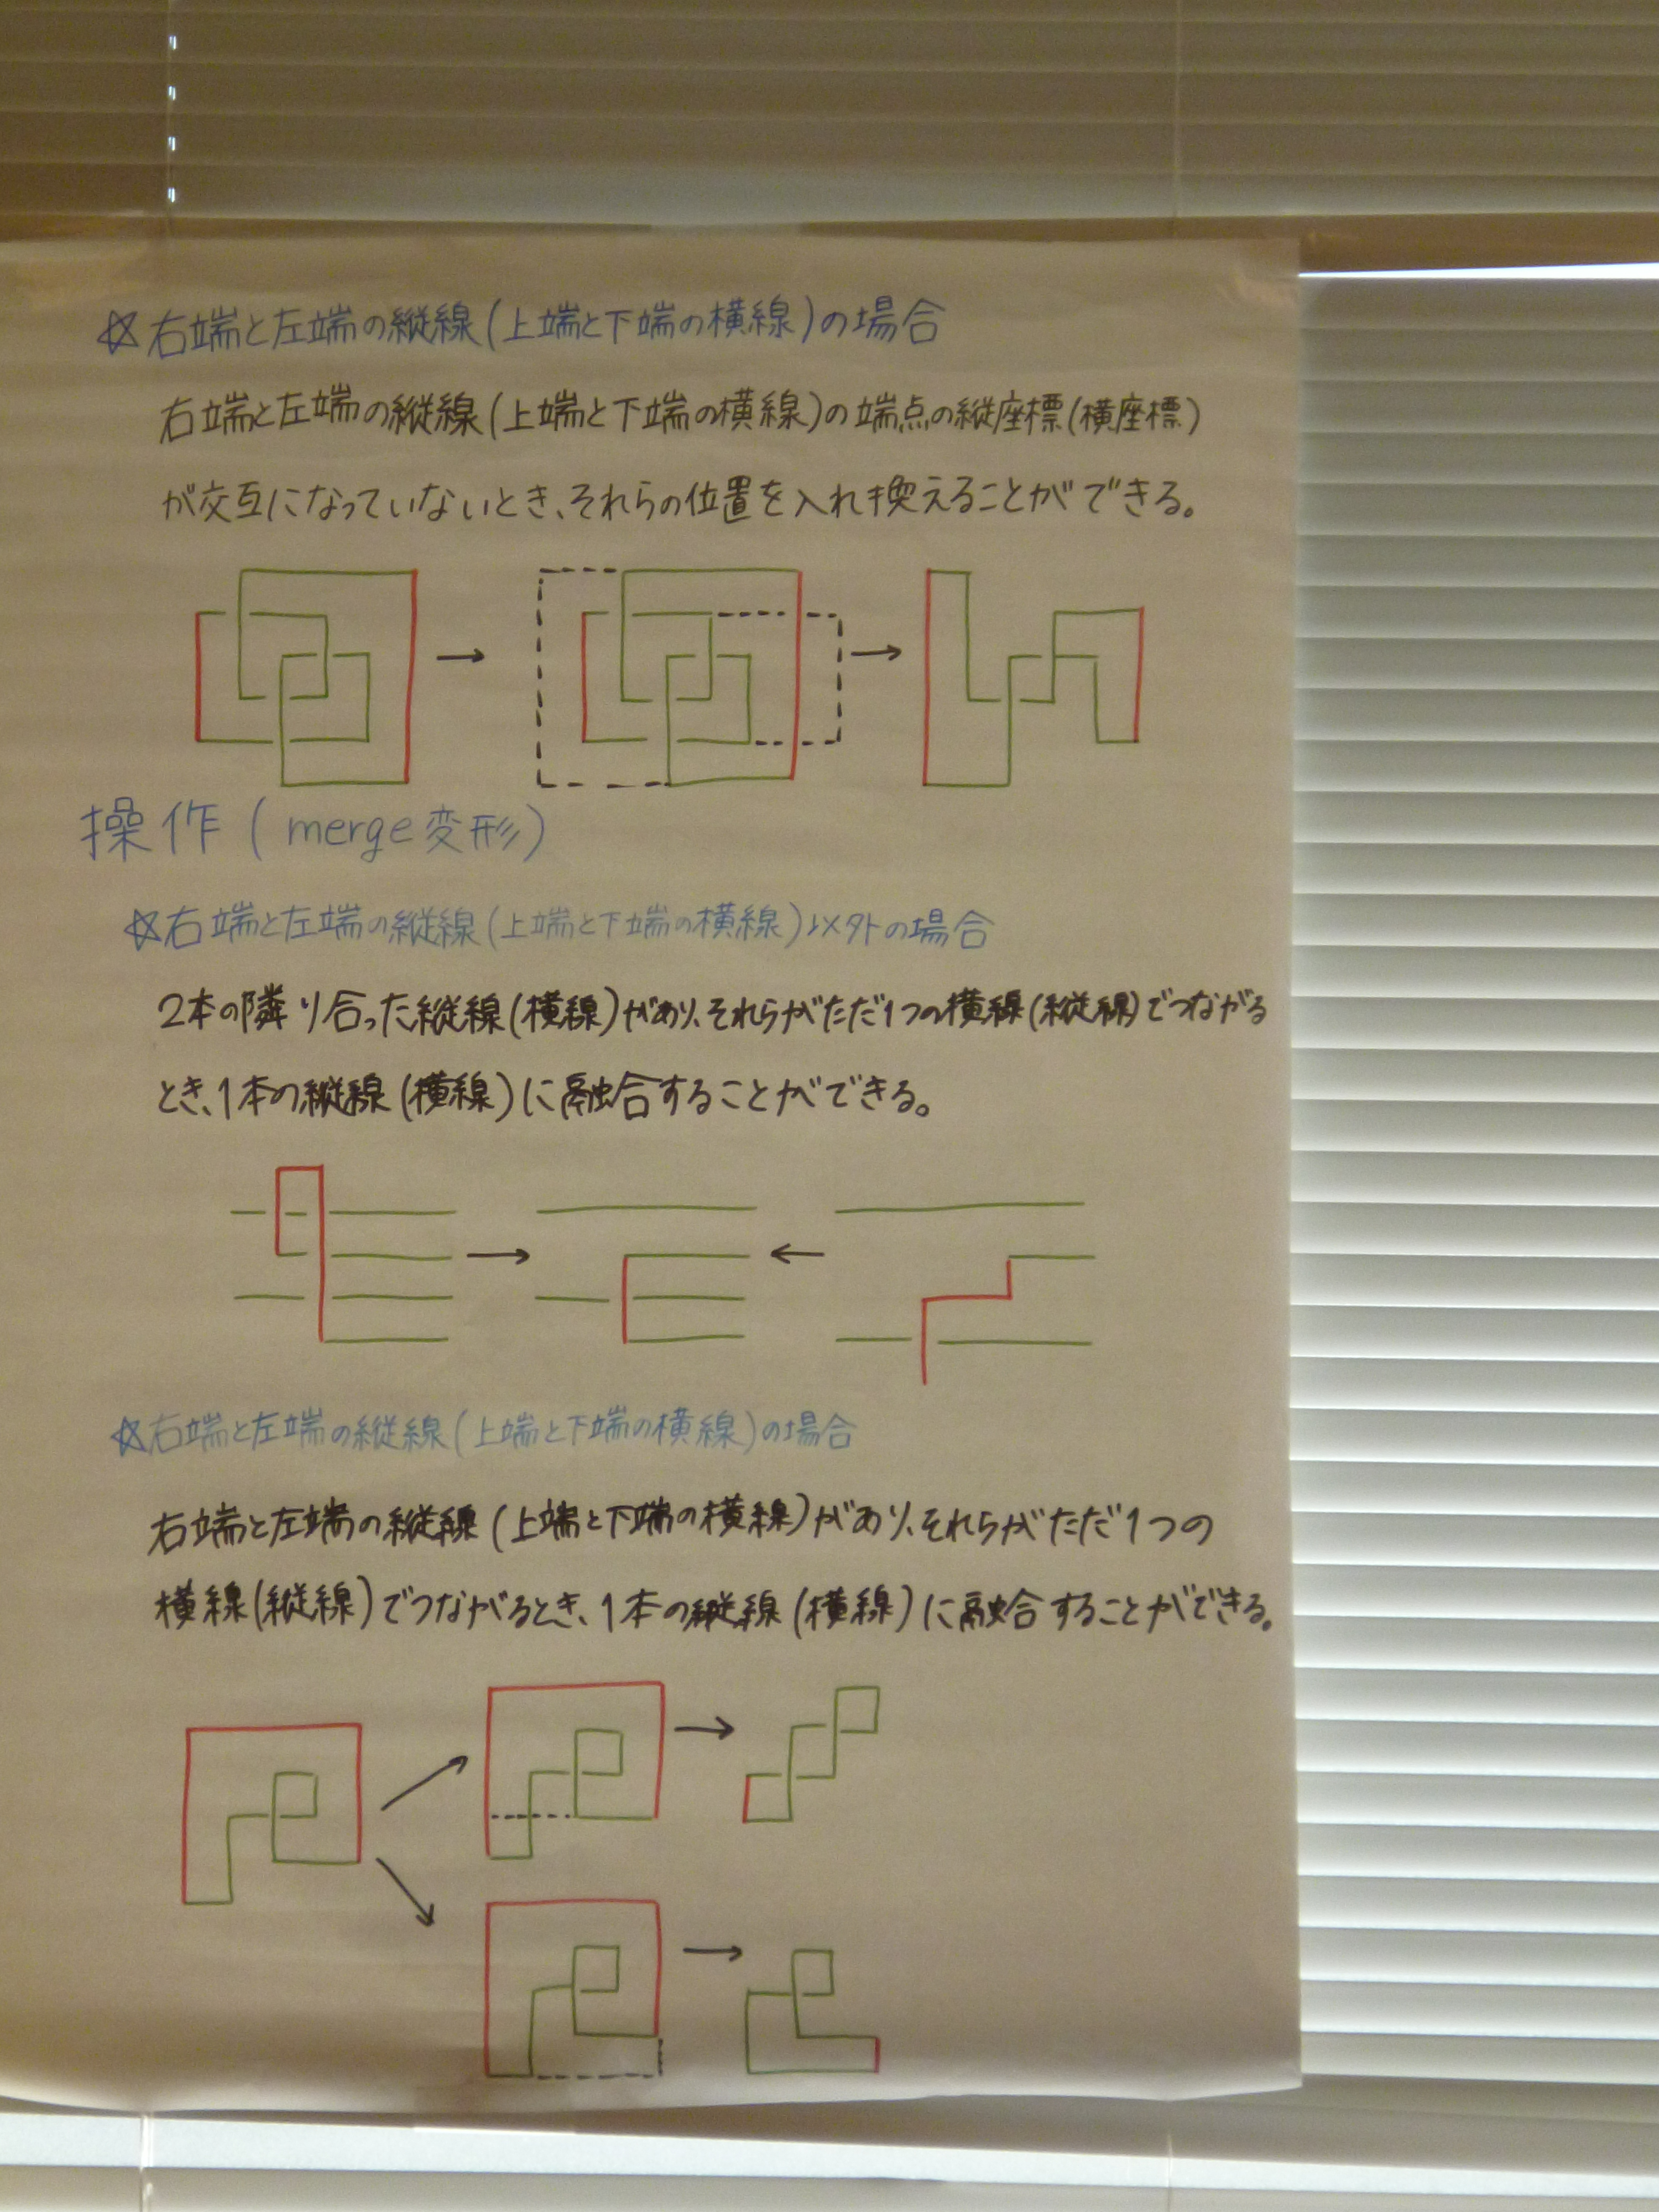 ☆右端と左端の縦線(上端と下端の横線)の場合
右端と左端の縦線(上端と下端の横線)の端点の縦座標(横座標)
が交互になっていないとき、それらの位置を入れ換えることができる。
操作(merge変形)
☆右端と左端の縦線(上端と下端の横線)以外の場合
2本の隣り合った縦線(横線)があり、それらがただ1つの横線(縦線)でつながる
とき、1本の縦線(横線)に融合することができる。
☆右端と左端の縦線(上端と下端の横線)の場合
右端と左端の縦線(上端と下端の横線)があり、それらがただ1つの
横線(縦線)でつながるとき、1本の縦線(横線)に融合することができる。